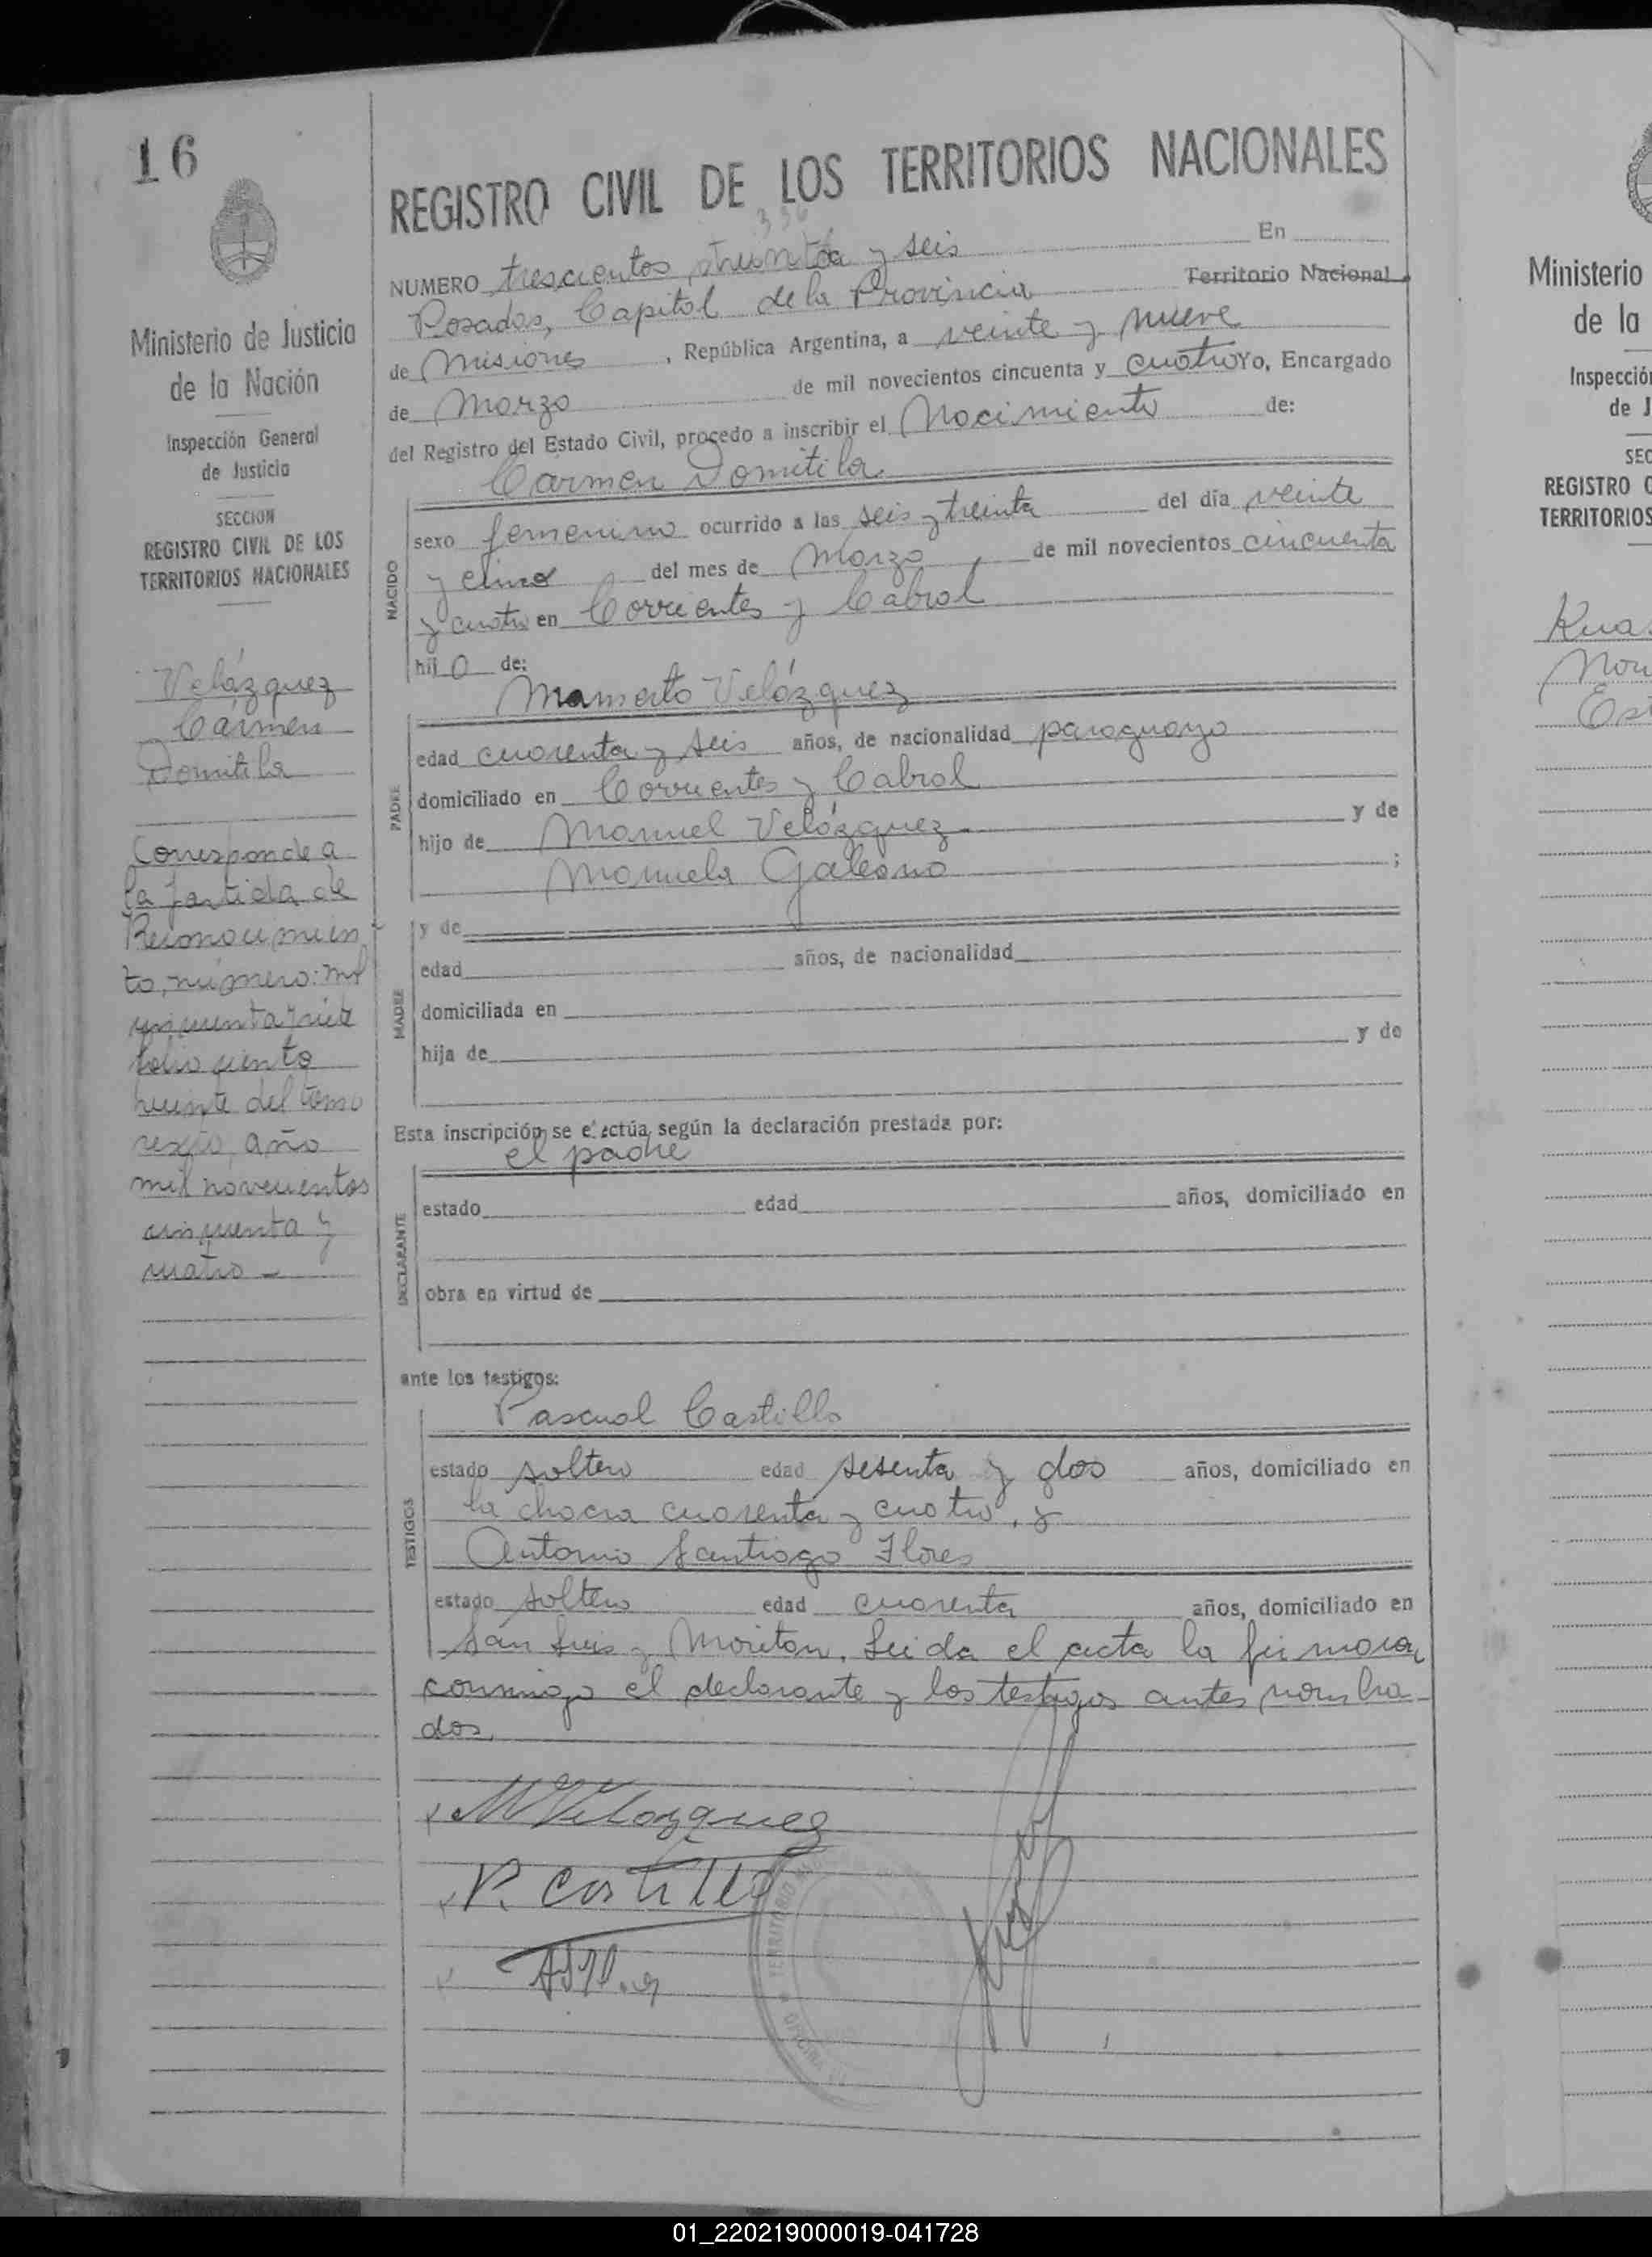 16
REGISTRO CIVIL DE LOS TERRITORIOS NACIONALES
336
NUMERO trescientos treinta y seis En
Posadas, Capital de la Provincia Territorio Nacional
de Misiones, República Argentina, a veinte y nueve
de Marzo de mil novecientos cincuenta y cuatro Yo, Encargado
del Registro del Estado Civil, procedo a inscribir el Nacimiento de:
Carmen Domitila
NACIDO
sexo femenino ocurrido a las seis y treinta del día veinte
y cinco del mes de Marzo de mil novecientos cincuenta
y cuatro en Corrientes y Cabral
hija de:
Mamerto Velázquez
PADRE
edad cuarenta y seis años, de nacionalidad paraguayo
domiciliado en Corrientes y Cabral
hijo de Manuel Velázquez y de
Manuela Galeano ;
y de
MADRE
edad años, de nacionalidad
domiciliada en
hija de y de
Esta inscripción se efectúa según la declaración prestada por:
el padre
DECLARANTE
estado edad años, domiciliado en
obra en virtud de
ante los testigos:
Pascual Castillo
TESTIGOS
estado soltero edad sesenta y dos años, domiciliado en
la chacra cuarenta y cuatro, y
Antonio Santiago Flores
estado soltero edad cuarenta años, domiciliado en
San Luis y Moritan. Leida el acta la firmaron
conmigo el declarante y los testigos antes nombra-
dos.
M Velazquez
P. Castillo
Ministerio de Justicia
de la Nación
Inspección General
de Justicia
SECCION
REGISTRO CIVIL DE LOS
TERRITORIOS NACIONALES
Velázquez
Cármen
Domitila
Corresponde a
la partida de
Reconocimien
to, número: mil
cincuenta y siete
folio ciento
veinte del tomo
sexto, año
mil novecientos
cincuenta y
cuatro -
TERRITORIO
OFICINA
Ministerio
de la
Inspección
de J
SEC
REGISTRO C
TERRITORIOS
01_220219000019-041728